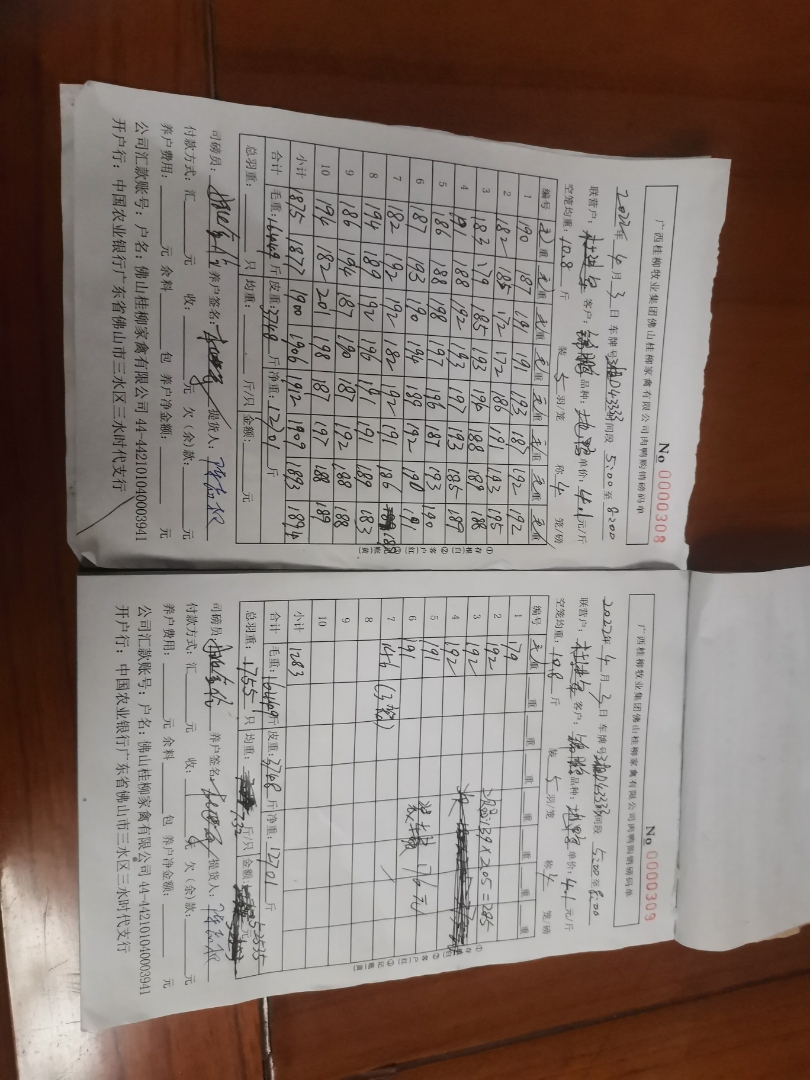 广西桂柳牧业集团佛山桂柳家禽有限公司肉鸭购销磅码单
No 0000308
2022年 4 月 3 日 车牌号 D43333 时间段 5:00 至 8:00
联营户: 客户: 品种: 单价: 4.1 元/斤
空笼均重: 10.8 斤 装 5 羽/笼 称 4 笼/磅
编号 毛重 毛重 毛重 毛重 毛重 毛重 毛重 毛重
1 190 187 191 191 193 187 192 192
2 182 185 172 172 186 191 193 195
3 183 179 185 193 196 188 189 188
4 191 188 192 193 197 193 185 187
5 186 188 198 197 196 187 193 190
6 187 193 190 194 189 192 190 191
7 182 192 192 182 192 191 186 188
8 194 189 192 196 191 191 189 183
9 186 194 187 190 187 192 188 188
10 194 182 201 198 187 197 188 189
小计 1875 1877 1900 1906 1912 1909 1893 1894
合计 毛重: 16449 斤 皮重: 3748 斤 净重: 12701 斤
总羽重: 只 均重: 斤/只 金额: 元
司磅员: 养户签名: 提货人:
付款方式: 汇 元 收: 元 欠(余)款: 元
养户费用: 元 余料 包 养户净金额: 元
公司汇款账号: 户名: 佛山桂柳家禽有限公司 44-442101040003941
开户行: 中国农业银行广东省佛山市三水区三水时代支行
①存根(白) ②客户(红) ③记账(黄)
广西桂柳牧业集团佛山桂柳家禽有限公司肉鸭购销磅码单
No 0000309
2022年 4 月 3 日 车牌号 D43333 时间段 5:00 至 8:00
联营户: 客户: 品种: 单价: 4.1 元/斤
空笼均重: 10.8 斤 装 5 羽/笼 称 4 笼/磅
编号 毛重 重 重 重 重 重 重 重
1 179
2 192
3 192
4 192
5 191
6 191
7 146 (3笼)
8
9
10
139×205=285
装车费 176元
小计 1283
合计 毛重: 16449 斤 皮重: 3748 斤 净重: 12701 斤
总羽重: 1755 只 均重: 7.32 斤/只 金额: 元
司磅员: 养户签名: 提货人:
付款方式: 汇 元 收: 元 欠(余)款: 元
养户费用: 元 余料 包 养户净金额: 元
公司汇款账号: 户名: 佛山桂柳家禽有限公司 44-442101040003941
开户行: 中国农业银行广东省佛山市三水区三水时代支行
①存根(白) ②客户(红) ③记账(黄)